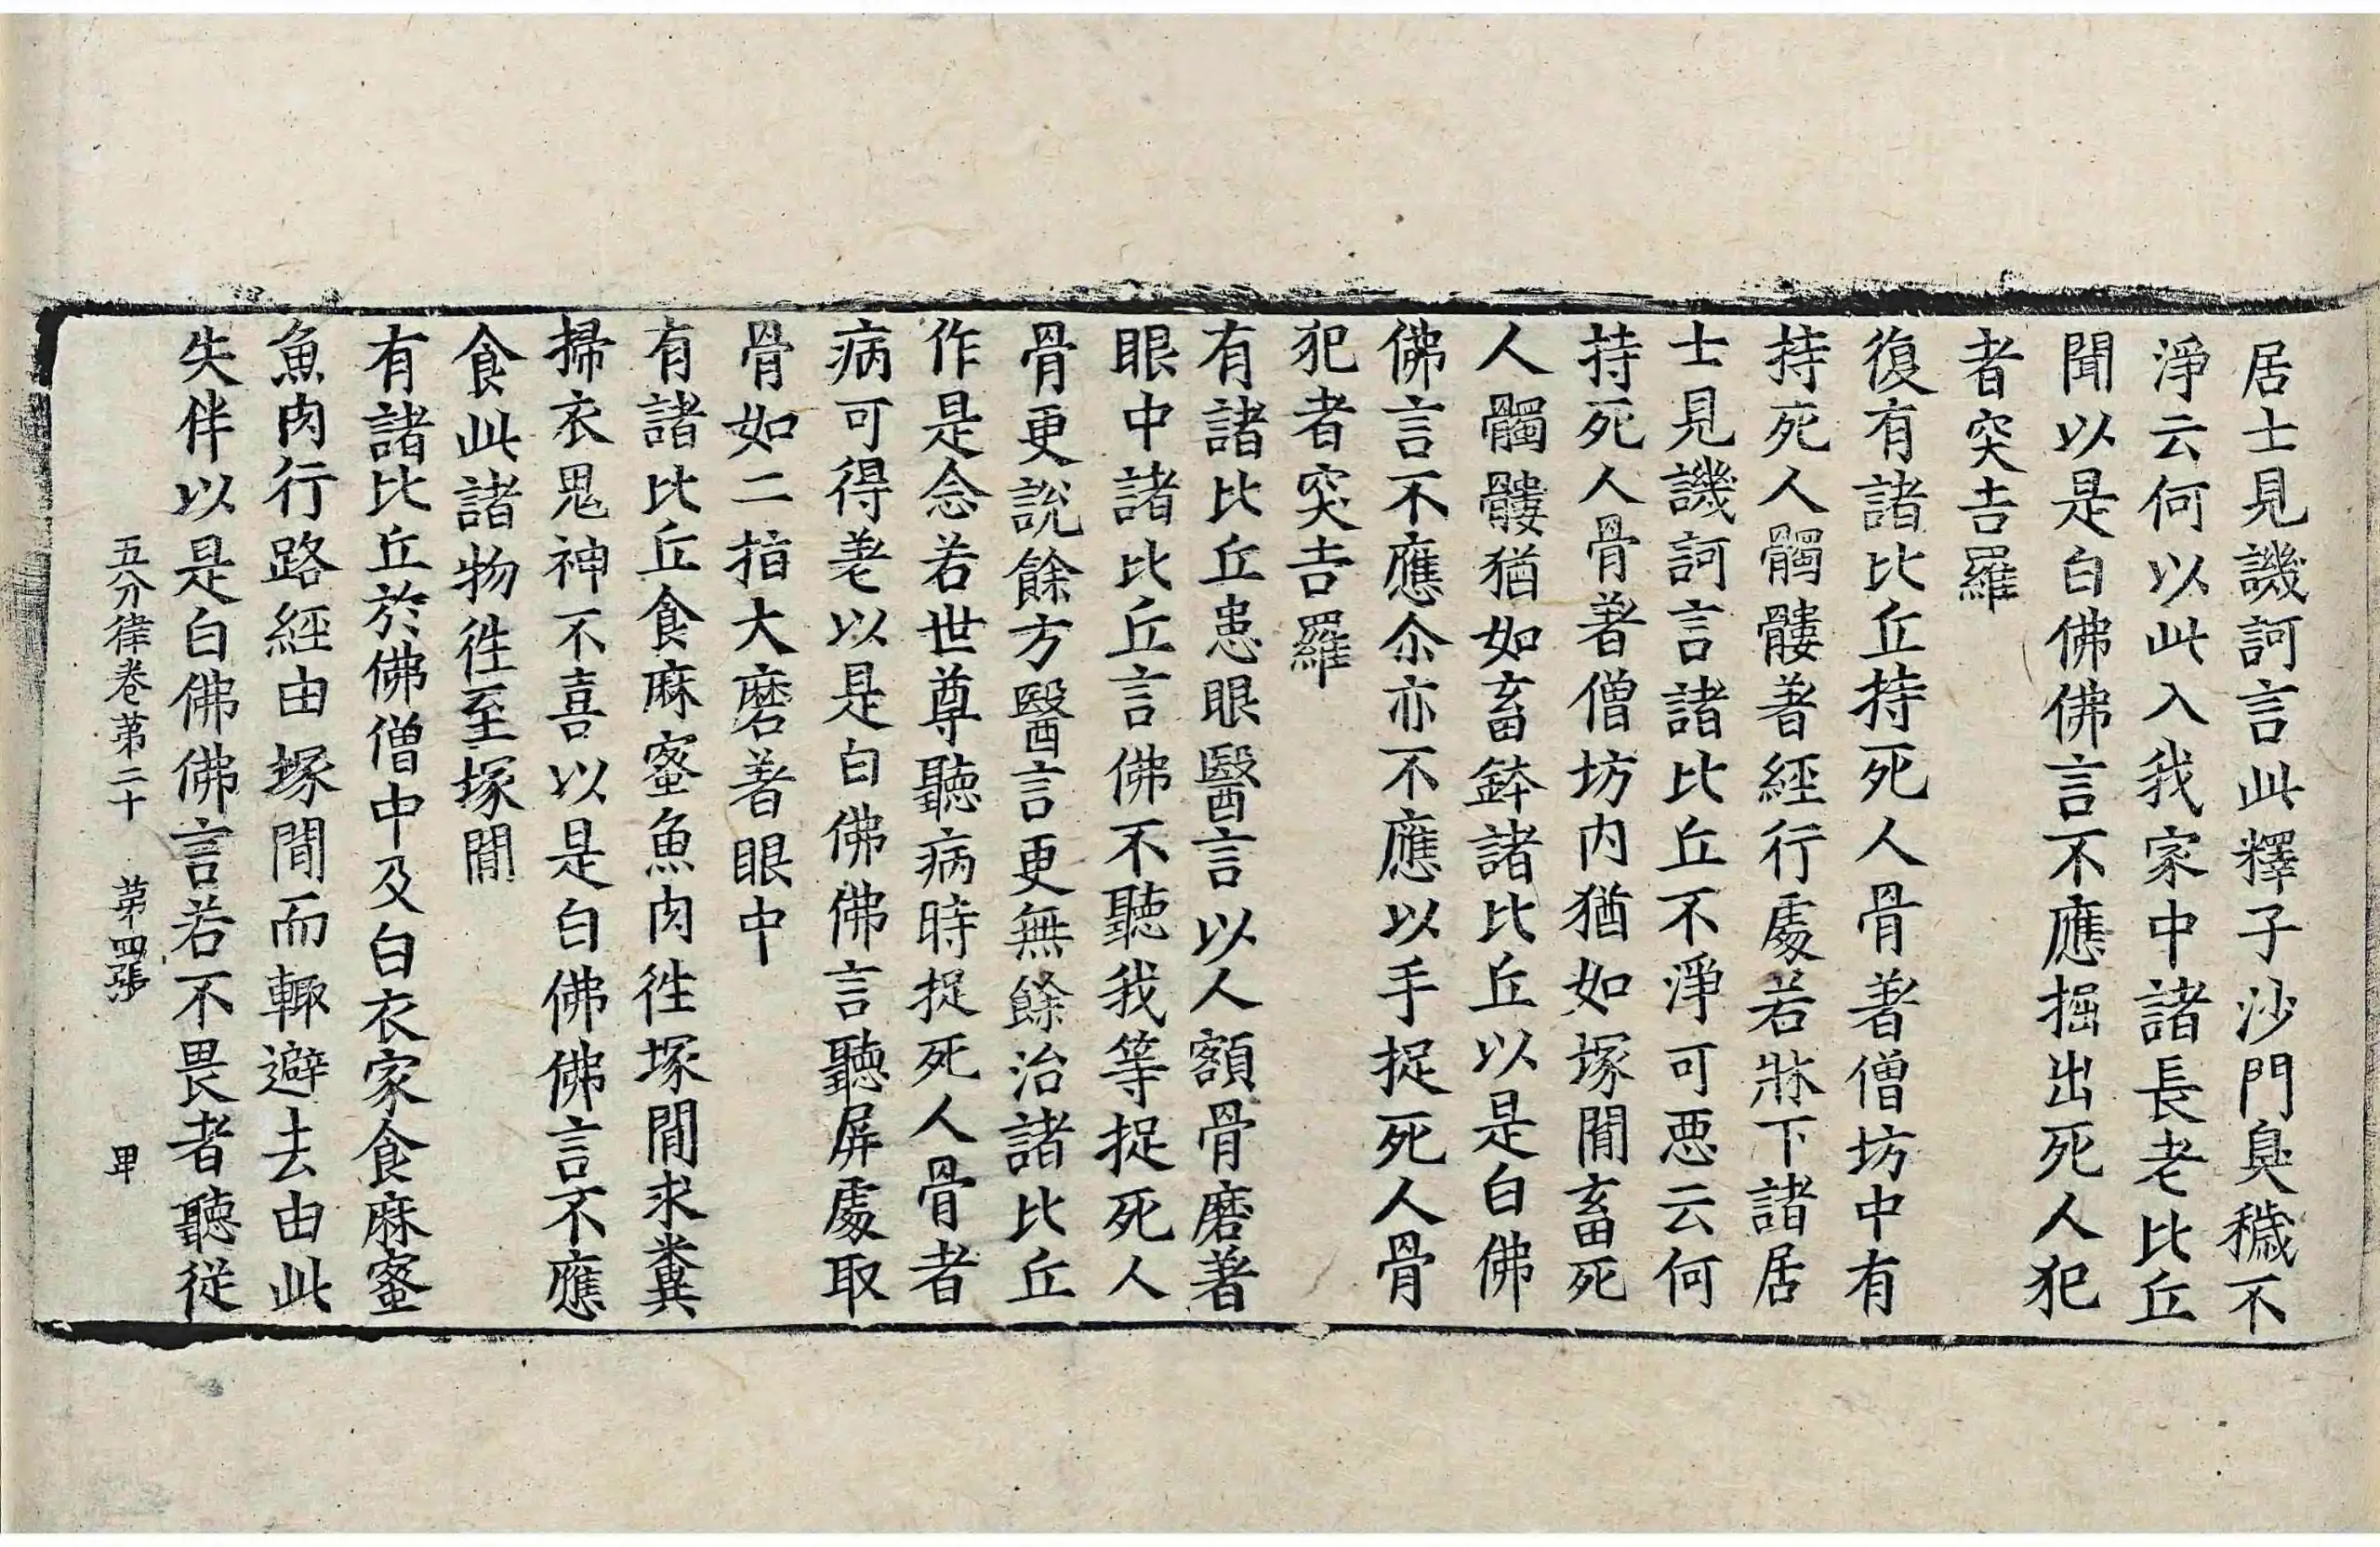 居士見譏訶言此釋子沙門臭穢不
淨云何以此入我家中諸長老比丘
聞以是白佛佛言不應掘出死人犯
者突吉羅
復有諸比丘持死人骨著僧坊中有
持死人髑髏著經行處若牀下諸居
士見譏訶言諸比丘不淨可惡云何
持死人骨著僧坊内猶如塚間畜死
人髑髏猶如畜鉢諸比丘以是白佛
佛言不應尒亦不應以手捉死人骨
犯者突吉羅
有諸比丘患眼醫言以人額骨磨著
眼中諸比丘言佛不聽我等捉死人
骨更說餘方醫言更無餘治諸比丘
作是念若世尊聽病時捉死人骨者
病可得差以是白佛佛言聽屏處取
骨如二指大磨著眼中
有諸比丘食麻蜜魚肉徃塚間求糞
掃衣鬼神不喜以是白佛佛言不應
食此諸物徃至塚間
有諸比丘於佛僧中及白衣家食麻蜜
魚肉行路經由塚間而輙避去由此
失伴以是白佛佛言若不畏者聽従
五分律卷第二十 第四張 甲